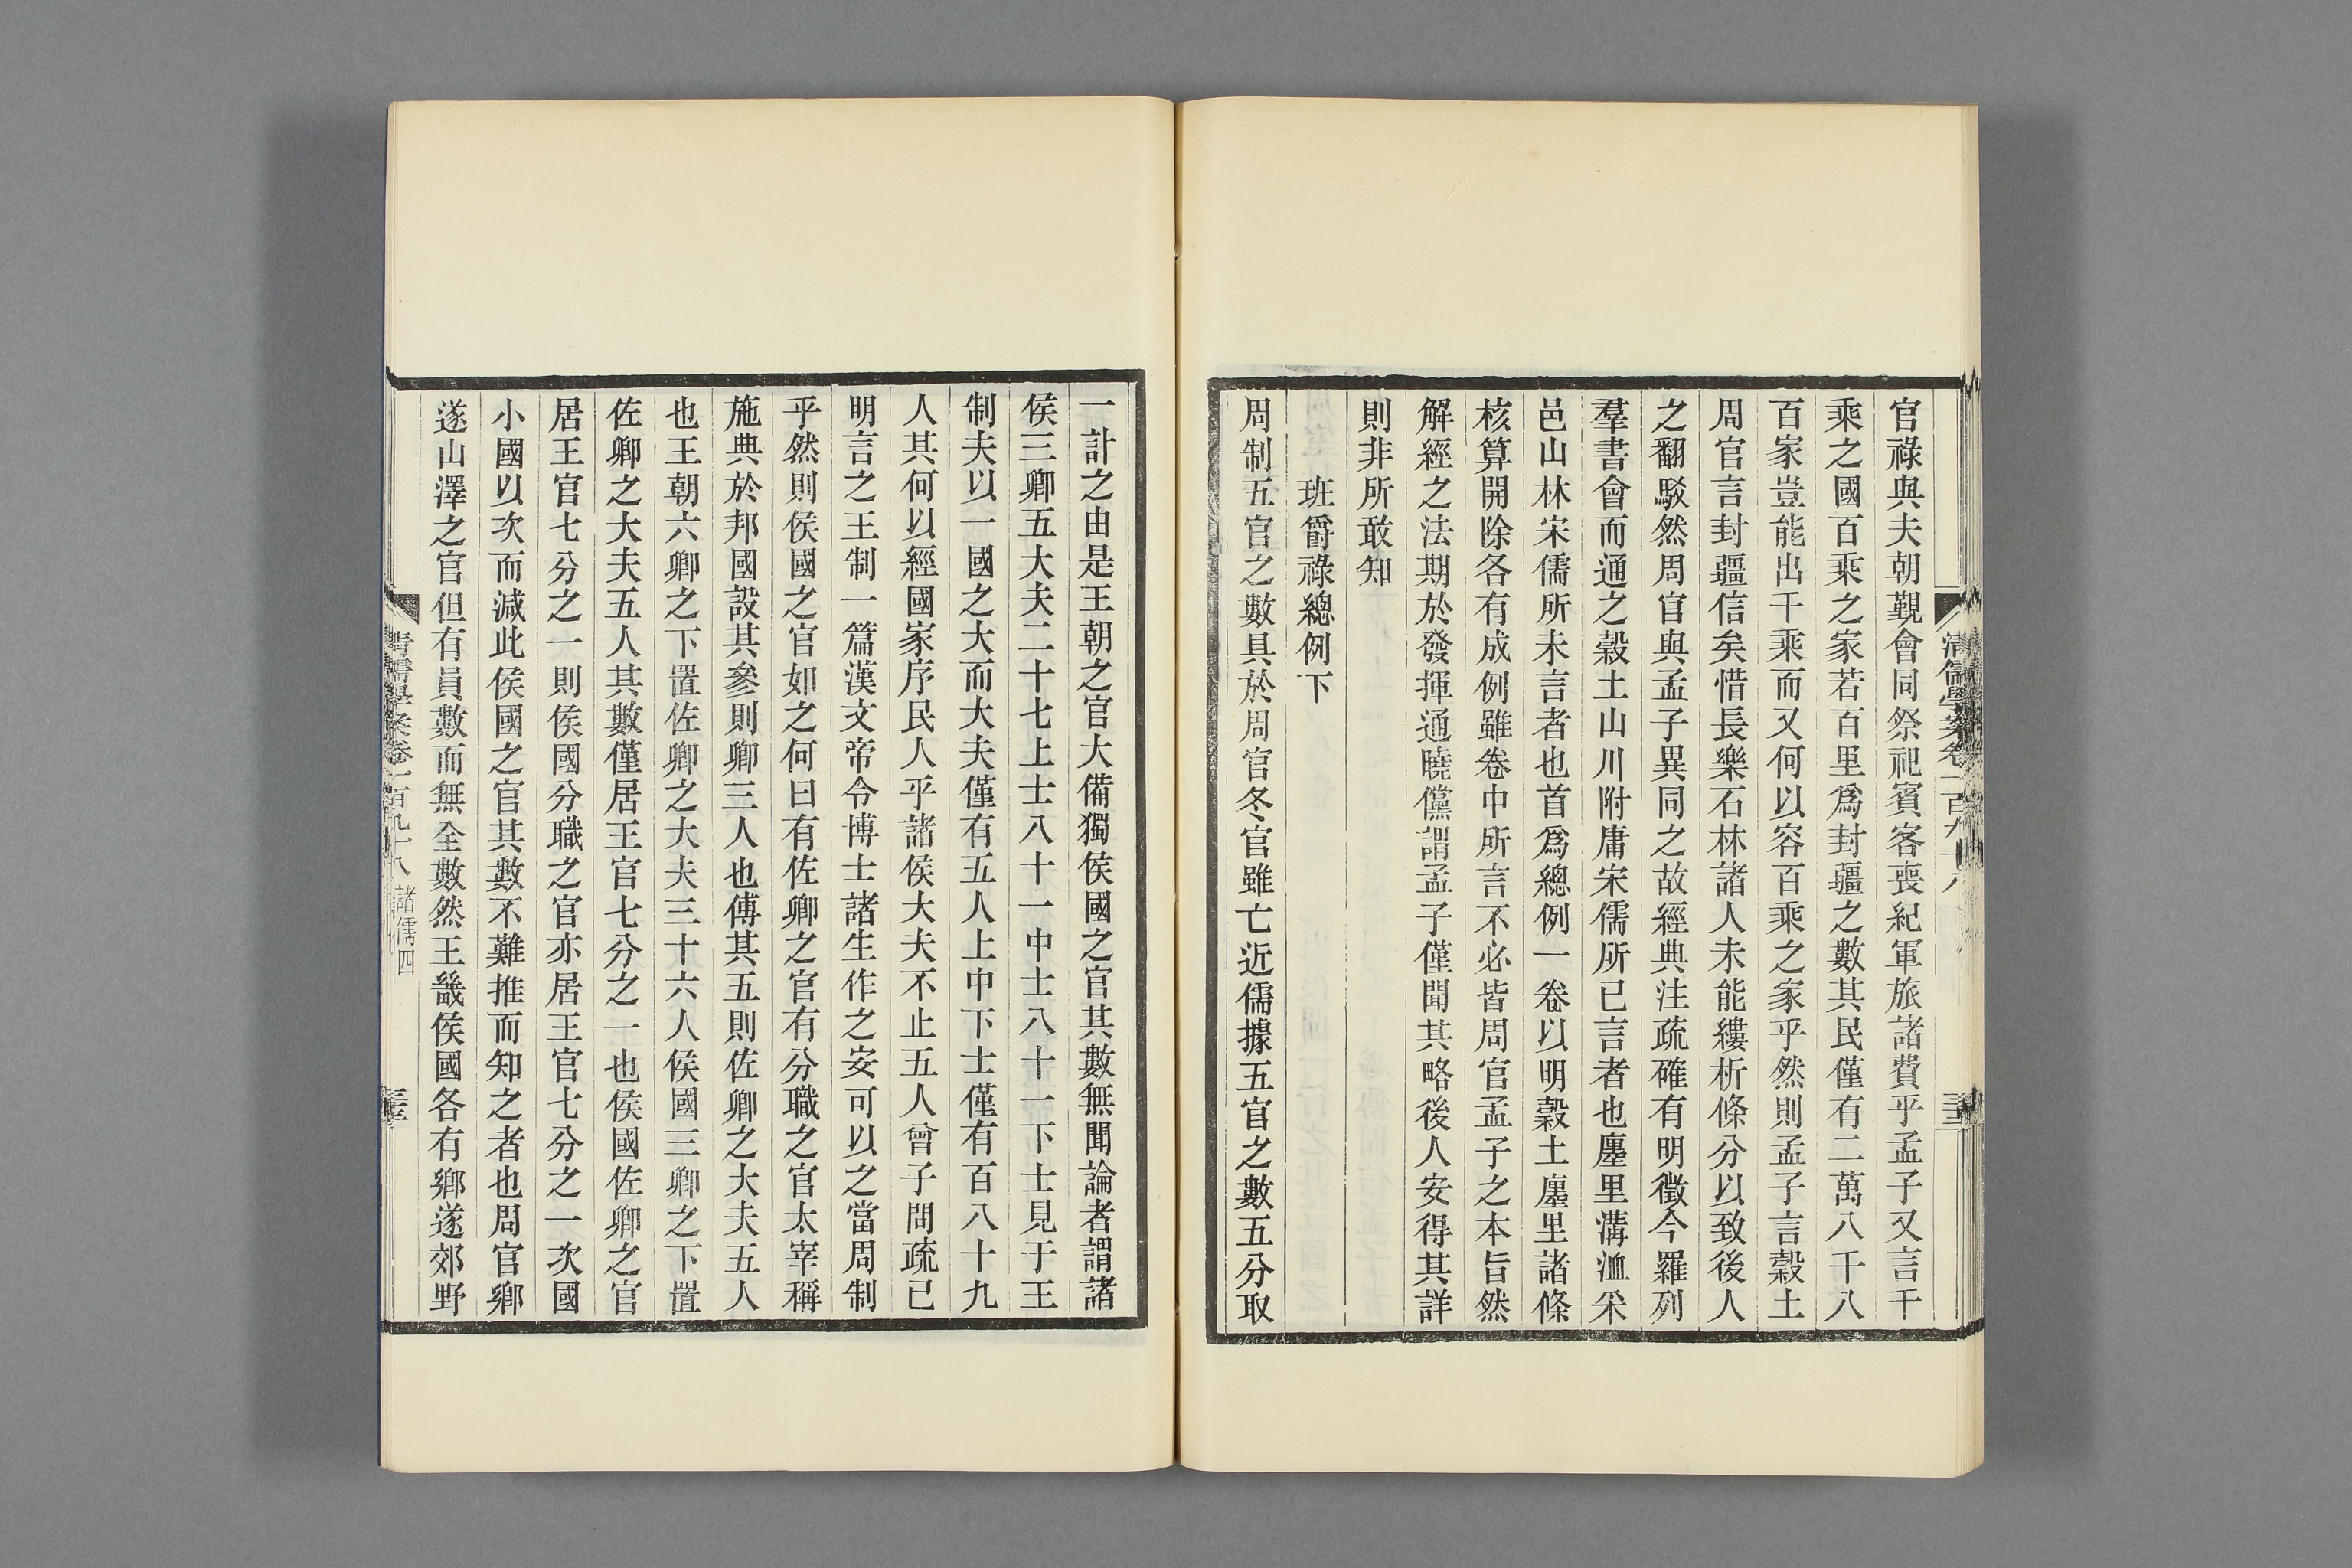 官祿與夫朝覲會同祭祀賓客喪紀軍旅諸費乎孟子又言千
乘之國百乘之家若百里爲封疆之數其民僅有二萬八千八
百家豈能出千乘而又何以容百乘之家乎然則孟子言穀土
周官言封疆信矣惜長樂石林諸人未能縷析條分以致後人
之翻駁然周官與孟子異同之故經典注疏確有明徵今羅列
羣書會而通之穀土山川附庸宋儒所已言者也廛里溝洫采
邑山林宋儒所未言者也首爲總例一卷以明穀土廛里諸條
核算開除各有成例雖卷中所言不必皆周官孟子之本旨然
解經之法期於發揮通曉儻謂孟子僅聞其略後人安得其詳
則非所敢知
班爵祿總例下
周制五官之數具於周官冬官雖亡近儒據五官之數五分取
一計之由是王朝之官大備獨侯國之官其數無聞論者謂諸
侯三卿五大夫二十七上士八十一中士八十一下士見于王
制夫以一國之大而大夫僅有五人上中下士僅有百八十九
人其何以經國家序民人乎諸侯大夫不止五人曾子問疏已
明言之王制一篇漢文帝令博士諸生作之安可以之當周制
乎然則侯國之官如之何曰有佐卿之官有分職之官太宰稱
施典於邦國設其參則卿三人也傅其五則佐卿之大夫五人
也王朝六卿之下置佐卿之大夫三十六人侯國三卿之下置
佐卿之大夫五人其數僅居王官七分之一也侯國佐卿之官
居王官七分之一則侯國分職之官亦居王官七分之一次國
小國以次而減此侯國之官其數不難推而知之者也周官鄉
遂山澤之官但有員數而無全數然王畿侯國各有鄉遂郊野
清儒學案卷一百九十八 諸儒四